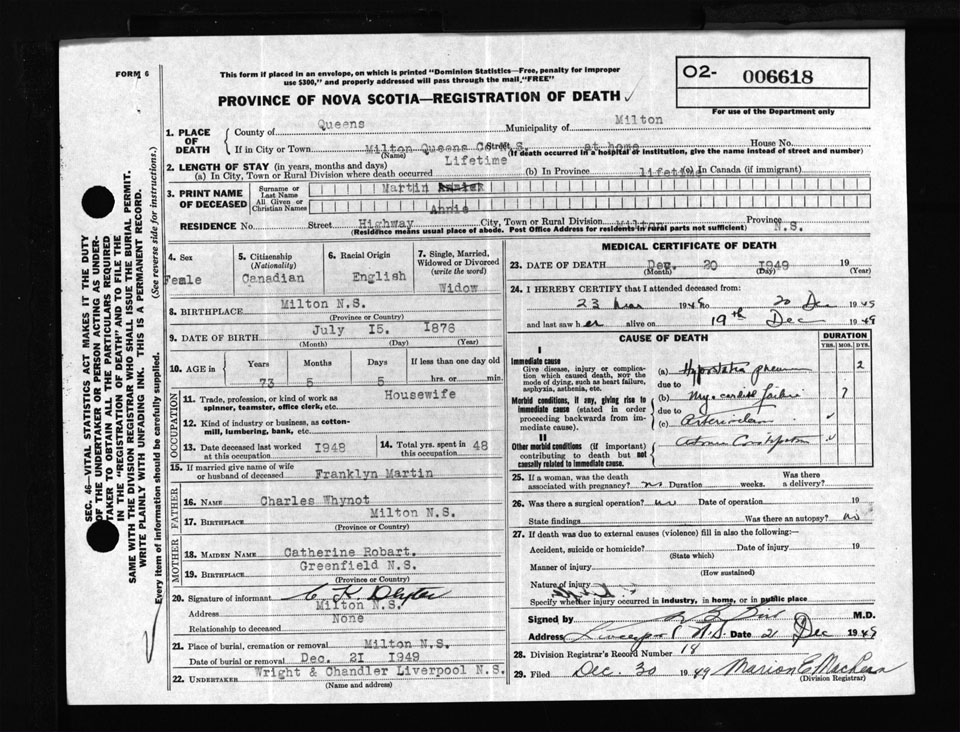 FORM 6
This form if placed in an envelope, on which is printed "Dominion Statistics—Free, penalty for improper
use $300," and properly addressed will pass through the mail "FREE"
PROVINCE OF NOVA SCOTIA—REGISTRATION OF DEATH
O2- 006618
For use of the Department only
SEC. 46—VITAL STATISTICS ACT MAKES IT THE DUTY
OF THE UNDERTAKER OR PERSON ACTING AS UNDER-
TAKER TO OBTAIN ALL THE PARTICULARS REQUIRED
IN THE "REGISTRATION OF DEATH" AND TO FILE THE
SAME WITH THE DIVISION REGISTRAR WHO SHALL ISSUE THE BURIAL PERMIT.
WRITE PLAINLY WITH UNFADING INK. THIS IS A PERMANENT RECORD.
Every item of information should be carefully supplied. (See reverse side for instructions.)
1. PLACE OF DEATH
County of Queens Municipality of Milton
If in City or Town Milton Queens Co N.S. Street at home House No.
(Name) (If death occurred in a hospital or institution, give the name instead of street and number)
2. LENGTH OF STAY (in years, months and days)
(a) In City, Town or Rural Division where death occurred Lifetime (b) In Province lifetime (c) In Canada (if immigrant)
3. PRINT NAME OF DECEASED
Surname or Last Name Martin
All Given or Christian Names Annie
RESIDENCE No. Street Highway City, Town or Rural Division Milton Province N.S.
(Residence means usual place of abode. Post Office Address for residents in rural parts not sufficient)
4. Sex Femle
5. Citizenship (Nationality) Canadian
6. Racial Origin English
7. Single, Married, Widowed or Divorced (write the word) Widow
8. BIRTHPLACE Milton N.S.
(Province or Country)
9. DATE OF BIRTH July I5. I876
(Month) (Day) (Year)
10. AGE in Years Months Days If less than one day old
73 5 5 hrs. or min.
OCCUPATION
11. Trade, profession, or kind of work as spinner, teamster, office clerk, etc. Housewife
12. Kind of industry or business, as cotton-mill, lumbering, bank, etc.
13. Date deceased last worked at this occupation I948
14. Total yrs. spent in this occupation 48
15. If married give name of wife or husband of deceased Franklyn Martin
FATHER
16. NAME Charles Whynot
17. BIRTHPLACE Milton N.S.
(Province or Country)
MOTHER
18. MAIDEN NAME Catherine Robart.
19. BIRTHPLACE Greenfield N.S.
(Province or Country)
20. Signature of informant C K
Address Milton N.S.
Relationship to deceased None
21. Place of burial, cremation or removal Milton N.S.
Date of burial or removal Dec. 2I I949
22. UNDERTAKER Wright & Chandler Liverpool N.S.
(Name and address)
MEDICAL CERTIFICATE OF DEATH
23. DATE OF DEATH Dec. 20 I949 19
(Month) (Day) (Year)
24. I HEREBY CERTIFY that I attended deceased from:
23 1949 to 20 Dec 1949
and last saw her alive on 19th Dec 1949
CAUSE OF DEATH
DURATION
YRS. MOS. DYS.
I
Immediate cause
Give disease, injury or complication which caused death, NOT the mode of dying, such as heart failure, asphyxia, asthenia, etc.
(a) Hypostatic 2
due to
Morbid conditions, if any, giving rise to immediate cause (stated in order proceeding backwards from immediate cause).
(b) Myocardial failure ?
due to
(c)
II
Other morbid conditions (if important) contributing to death but not causally related to immediate cause.
25. If a woman, was the death associated with pregnancy? no Duration weeks. Was there a delivery?
26. Was there a surgical operation? no Date of operation 19
State findings Was there an autopsy? no
27. If death was due to external causes (violence) fill in also the following:—
Accident, suicide or homicide? Date of injury 19
(State which)
Manner of injury
(How sustained)
Nature of injury
Specify whether injury occurred in industry, in home, or in public place
Signed by M.D.
Address Liverpool N.S. Date 21 Dec 1949
28. Division Registrar's Record Number 18
29. Filed Dec. 30 1949 Marion C
(Division Registrar)